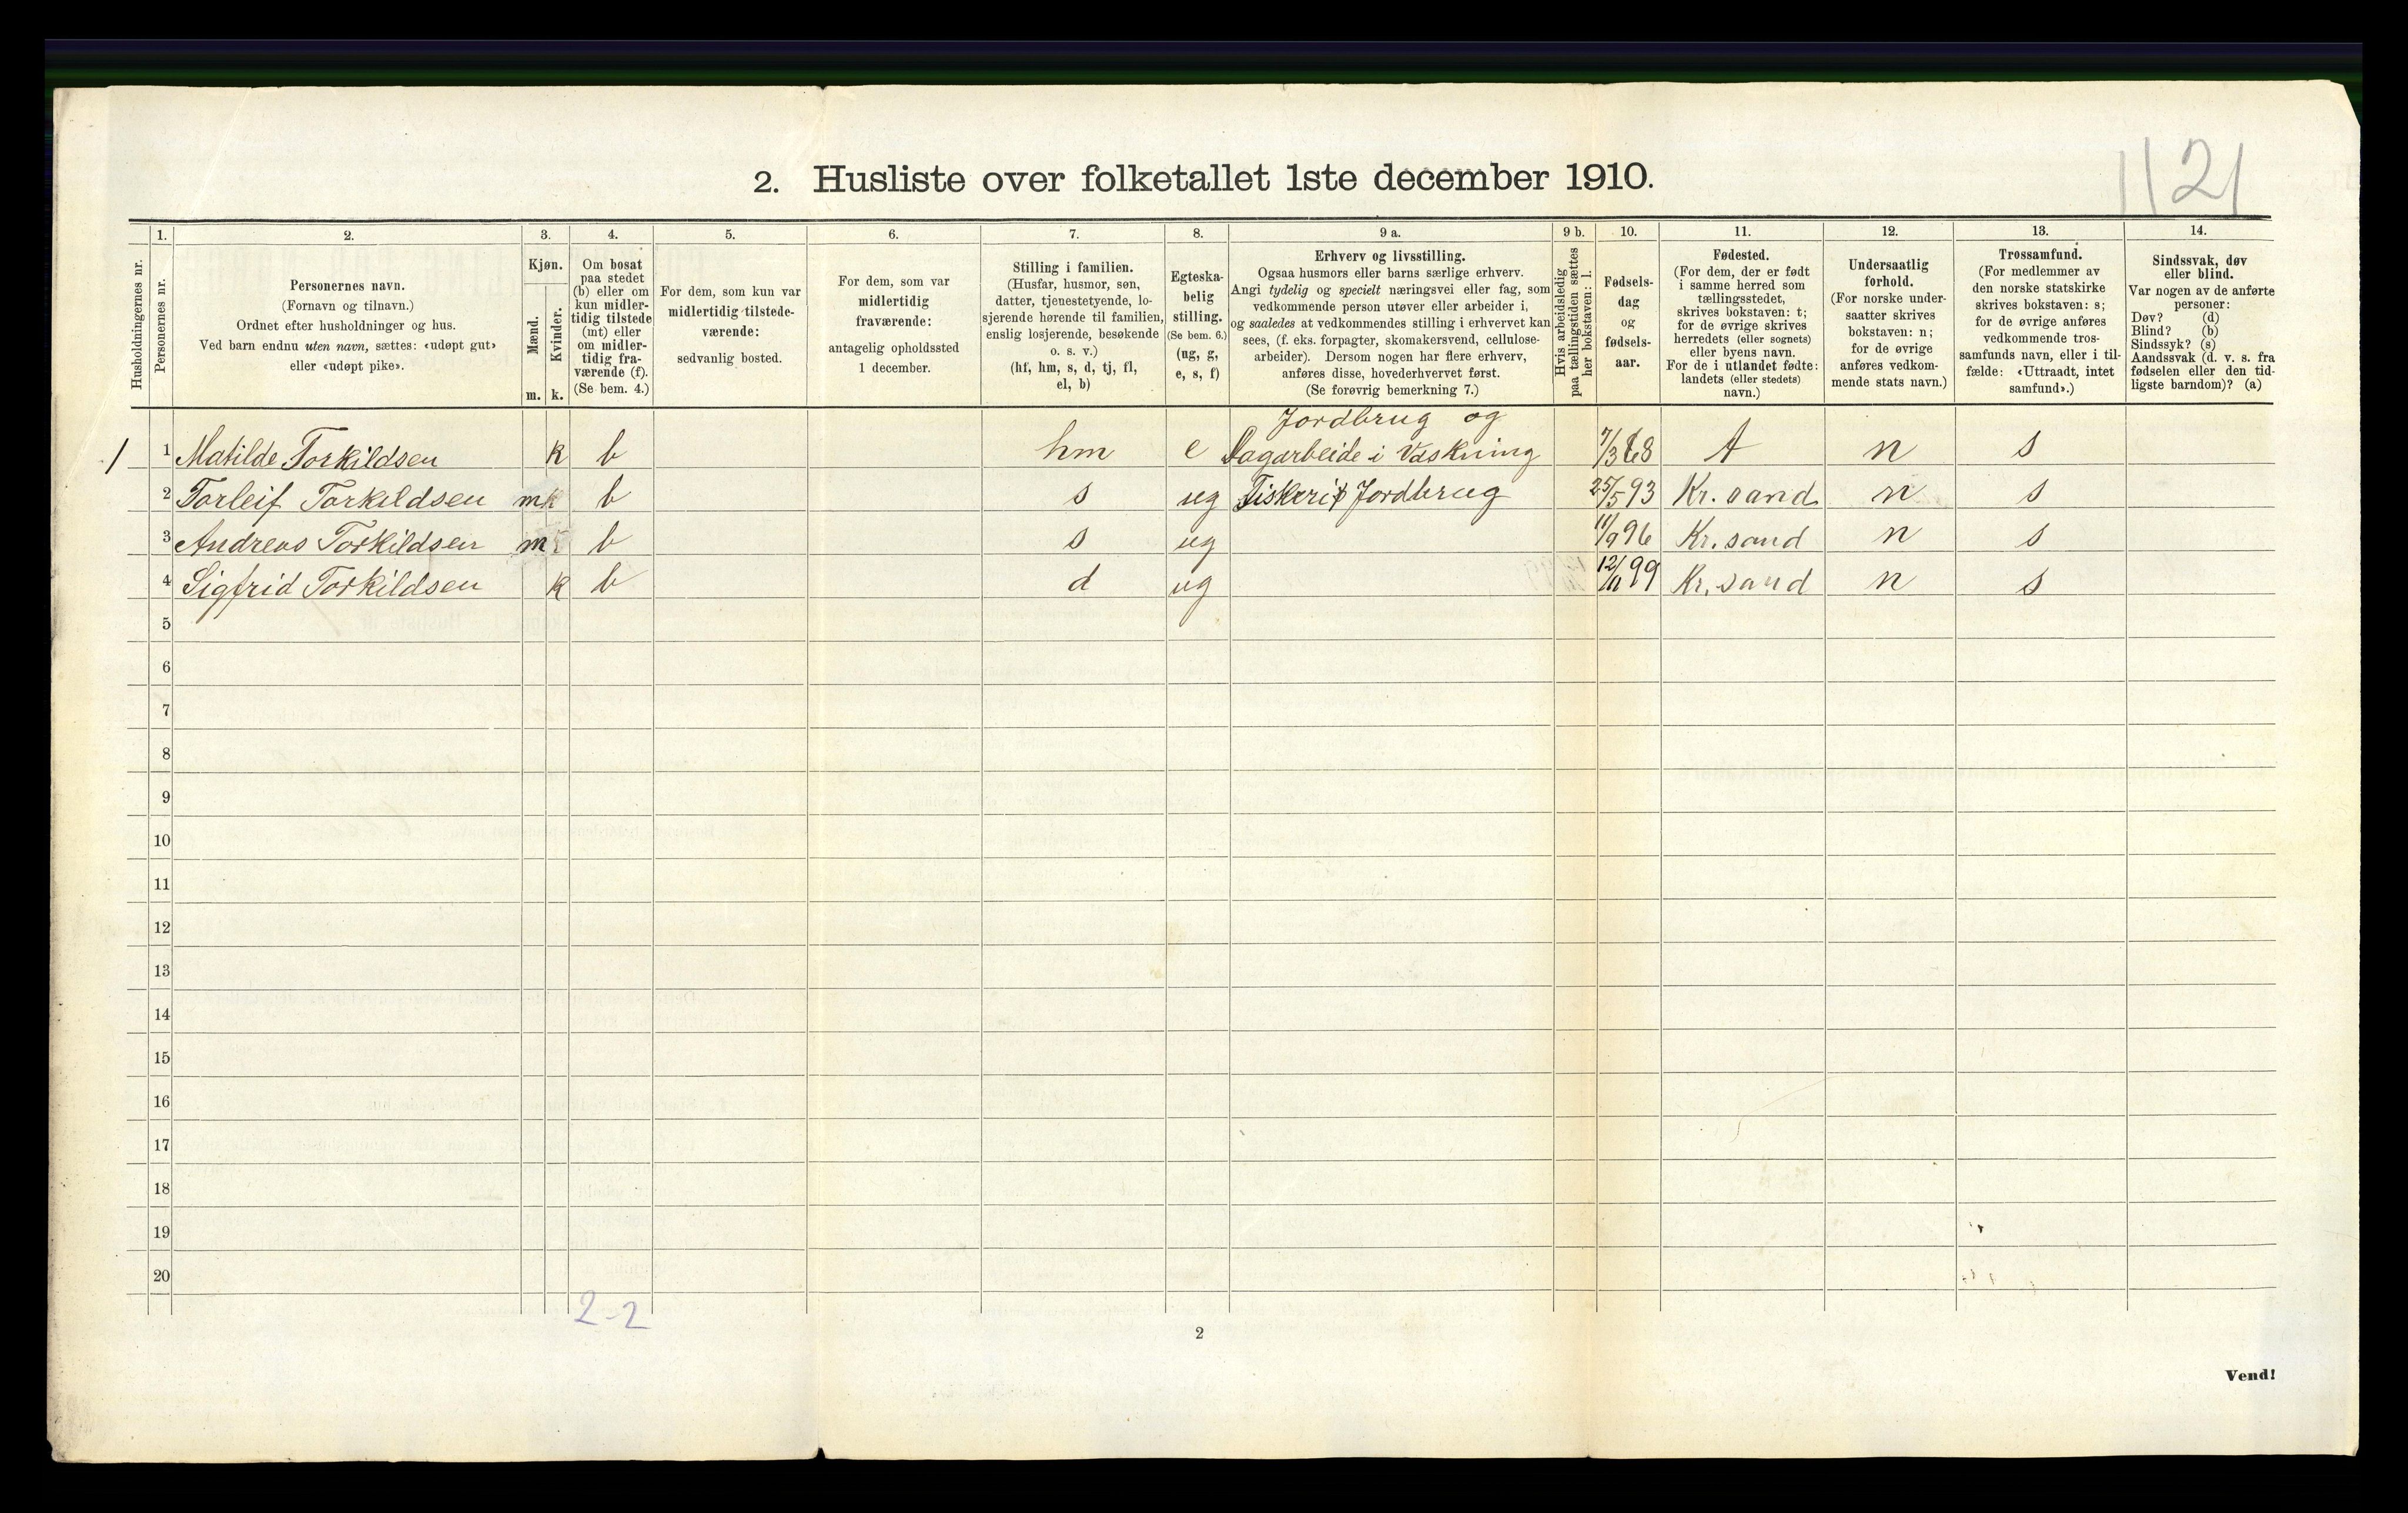 1121
2. Husliste over folketallet 1ste december 1910.
Husholdningernes nr.
1. Personernes nr.
2. Personernes navn.
(Fornavn og tilnavn.)
Ordnet efter husholdninger og hus.
Ved barn endnu uten navn, sættes: «udøpt gut»
eller «udøpt pike».
3. Kjøn.
Mænd. m.
Kvinder. k.
4. Om bosat
paa stedet
(b) eller om
kun midler-
tidig tilstede
(mt) eller
om midler-
tidig fra-
værende (f).
(Se bem. 4.)
5. For dem, som kun var
midlertidig tilstede-
værende:
sedvanlig bosted.
6. For dem, som var
midlertidig
fraværende:
antagelig opholdssted
1 december.
7. Stilling i familien.
(Husfar, husmor, søn,
datter, tjenestetyende, lo-
sjerende hørende til familien,
enslig losjerende, besøkende
o. s. v.)
(hf, hm, s, d, tj, fl,
el, b)
8. Egteska-
belig
stilling.
(Se bem. 6.)
(ug, g,
e, s, f)
9 a. Erhverv og livsstilling.
Ogsaa husmors eller barns særlige erhverv.
Angi tydelig og specielt næringsvei eller fag, som
vedkommende person utøver eller arbeider i,
og saaledes at vedkommendes stilling i erhvervet kan
sees, (f. eks. forpagter, skomakersvend, cellulose-
arbeider). Dersom nogen har flere erhverv,
anføres disse, hovederhvervet først.
(Se forøvrig bemerkning 7.)
9 b. Hvis arbeidsledig
paa tællingstiden sættes
her bokstaven: l.
10. Fødsels-
dag
og
fødsels-
aar.
11. Fødested.
(For dem, der er født
i samme herred som
tællingsstedet,
skrives bokstaven: t;
for de øvrige skrives
herredets (eller sognets)
eller byens navn.
For de i utlandet fødte:
landets (eller stedets)
navn.)
12. Undersaatlig
forhold.
(For norske under-
saatter skrives
bokstaven: n;
for de øvrige
anføres vedkom-
mende stats navn.)
13. Trossamfund.
(For medlemmer av
den norske statskirke
skrives bokstaven: s;
for de øvrige anføres
vedkommende tros-
samfunds navn, eller i til-
fælde: «Uttraadt, intet
samfund».)
14. Sindssvak, døv
eller blind.
Var nogen av de anførte
personer:
Døv? (d)
Blind? (b)
Sindssyk? (s)
Aandssvak (d. v. s. fra
fødselen eller den tid-
ligste barndom)? (a)
Jordbrug og
1 1 Matilde Torkildsen k b hm e Dagarbeide i Vaskning 7/3 68 t n s
2 Torleif Torkildsen m b s ug Fiskeri & Jordbrug 25/5 93 Kr. sand n s
3 Andreas Torkildsen m b s ug 11/9 96 Kr. sand n s
4 Sigfrid Torkildsen k b d ug 12/11 99 Kr. sand n s
5
6
7
8
9
10
11
12
13
14
15
16
17
18
19
20
2-2
2
Vend!